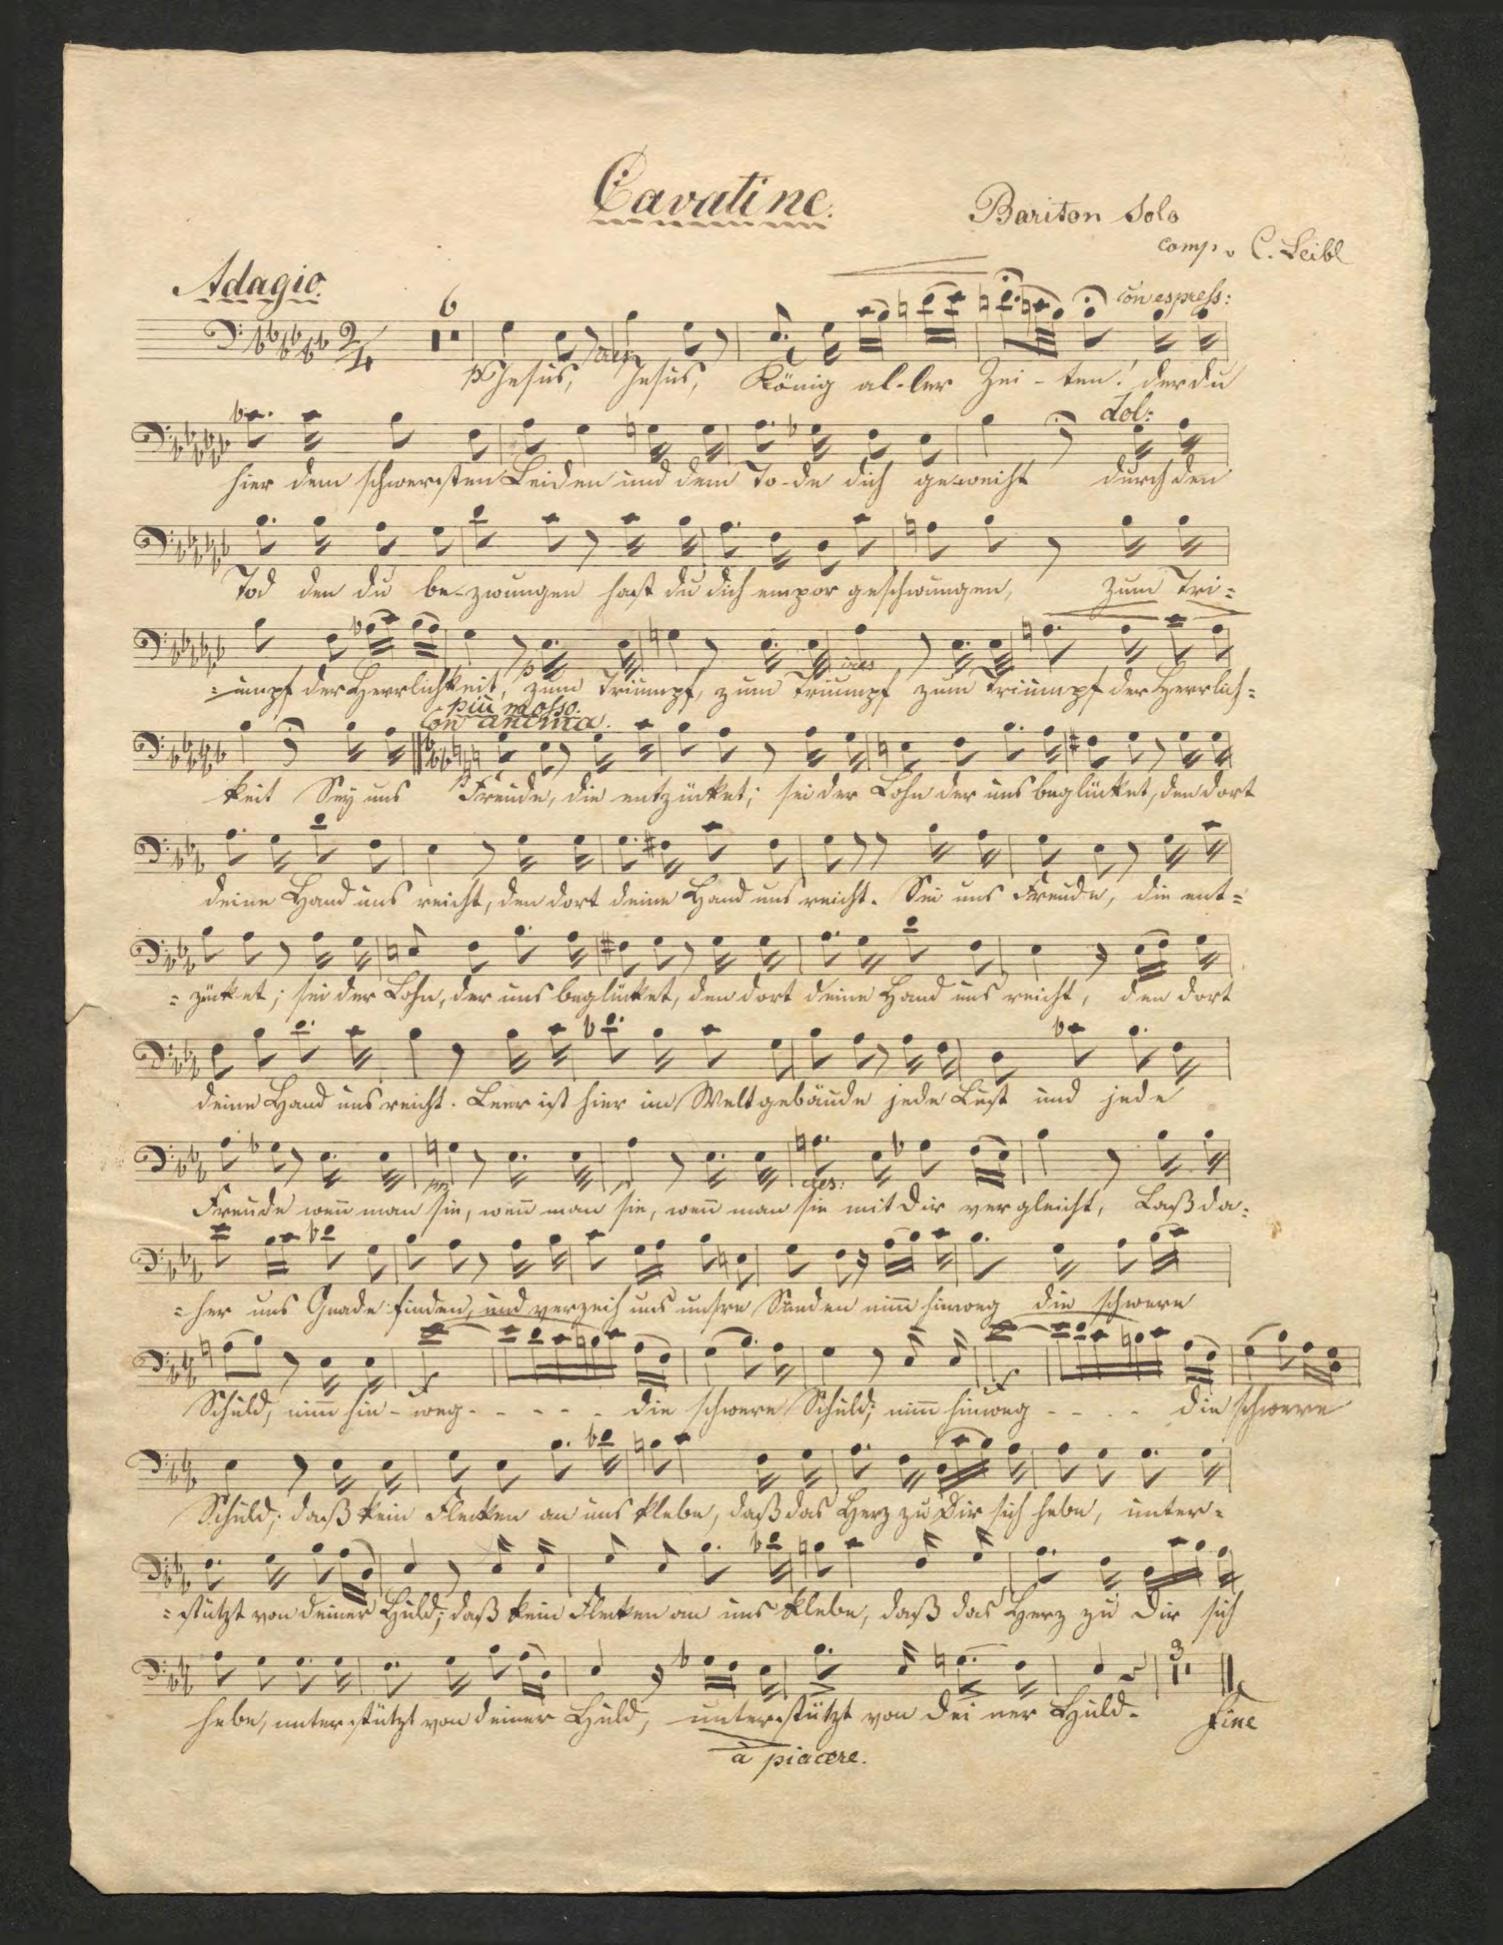 Cavatine.
Bariton Solo
comp. v C. Leibl
Adagio.
6
con espress:
p cres
Jesus, Jesus, König al-ler Zei-ten! der du
dol:
hier dem schwersten Leiden und dem To-de dich geweiht durch den
Tod den du be-zwungen hast du dich empor geschwungen, zum Tri=
p cres
=umpf der Herrlichkeit, zum Triumpf, zum Triumpf zum Triumpf der Herrlich=
più mosso.
con anima.
p
keit Sey uns Freude, die entzücket; sei der Lohn der uns beglücket, den dort
deine Hand uns reicht, den dort deine Hand uns reicht. Sei uns Freude, die ent=
=zücket; sei der Lohn, der uns beglücket, den dort deine Hand uns reicht, den dort
deine Hand uns reicht. Leer ist hier im Weltgebäude jede Lust und jede
cres:
Freude wenn man sie, wenn man sie, wenn man sie mit Dir vergleicht, Laß da=
=her uns Gnade finden, und verzeih uns unsre Sünden nim̅ hinweg die schwere
Schuld, nim̅ hin-weg - - - - - die schwere Schuld; nim̅ hinweg - - - - die schwere
Schuld; daß kein Flecken an uns klebe, daß das Herz zu Dir sich hebe, unter=
=stützt von deiner Huld; daß kein Flecken an uns klebe, daß das Herz zu Dir sich
3
hebe, unterstützt von deiner Huld, unterstützt von dei ner Huld. Fine
à piacere.